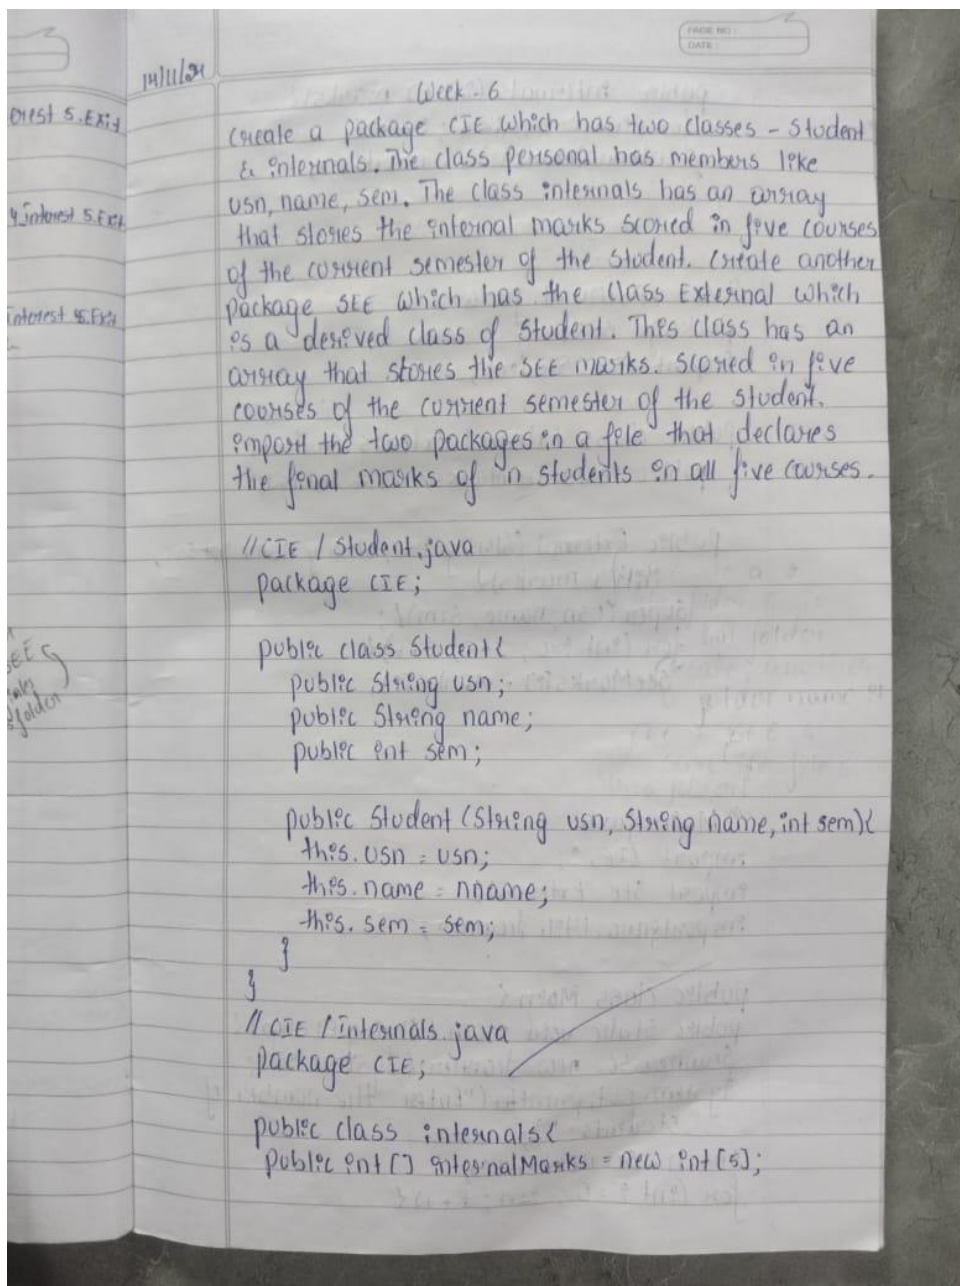 PAGE NO :
DATE :
14/11/24
Week - 6
Create a package CIE which has two classes - Student
& internals. The class personal has members like
usn, name, sem. The class internals has an array
that stores the internal marks scored in five courses
of the current semester of the student. Create another
package SEE which has the class External which
is a derived class of student. This class has an
array that stores the SEE marks. scored in five
courses of the current semester of the student.
import the two packages in a file that declares
the final marks of n students in all five courses.
//CIE / Student.java
package CIE;
public class Student{
public String usn;
public String name;
public int sem;
public Student (String usn, String name, int sem){
this.usn = usn;
this.name = nname;
this.sem = sem;
}
}
// CIE / Internals.java
package CIE;
public class internals{
public int [] internalMarks = new int [5];
5.Exit
interest 5.Exit
interest 5.Exit
SEE
folder